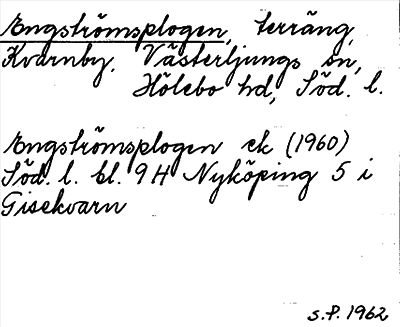 Engströmsplogen, terräng,
Kvarnby, Västerljungs sn,
Hölebo hd, Söd. l.
Engströmsplogen ek (1960)
Söd. l. bl. 9H Nyköping 5 i
Gisekvarn
S.P. 1962